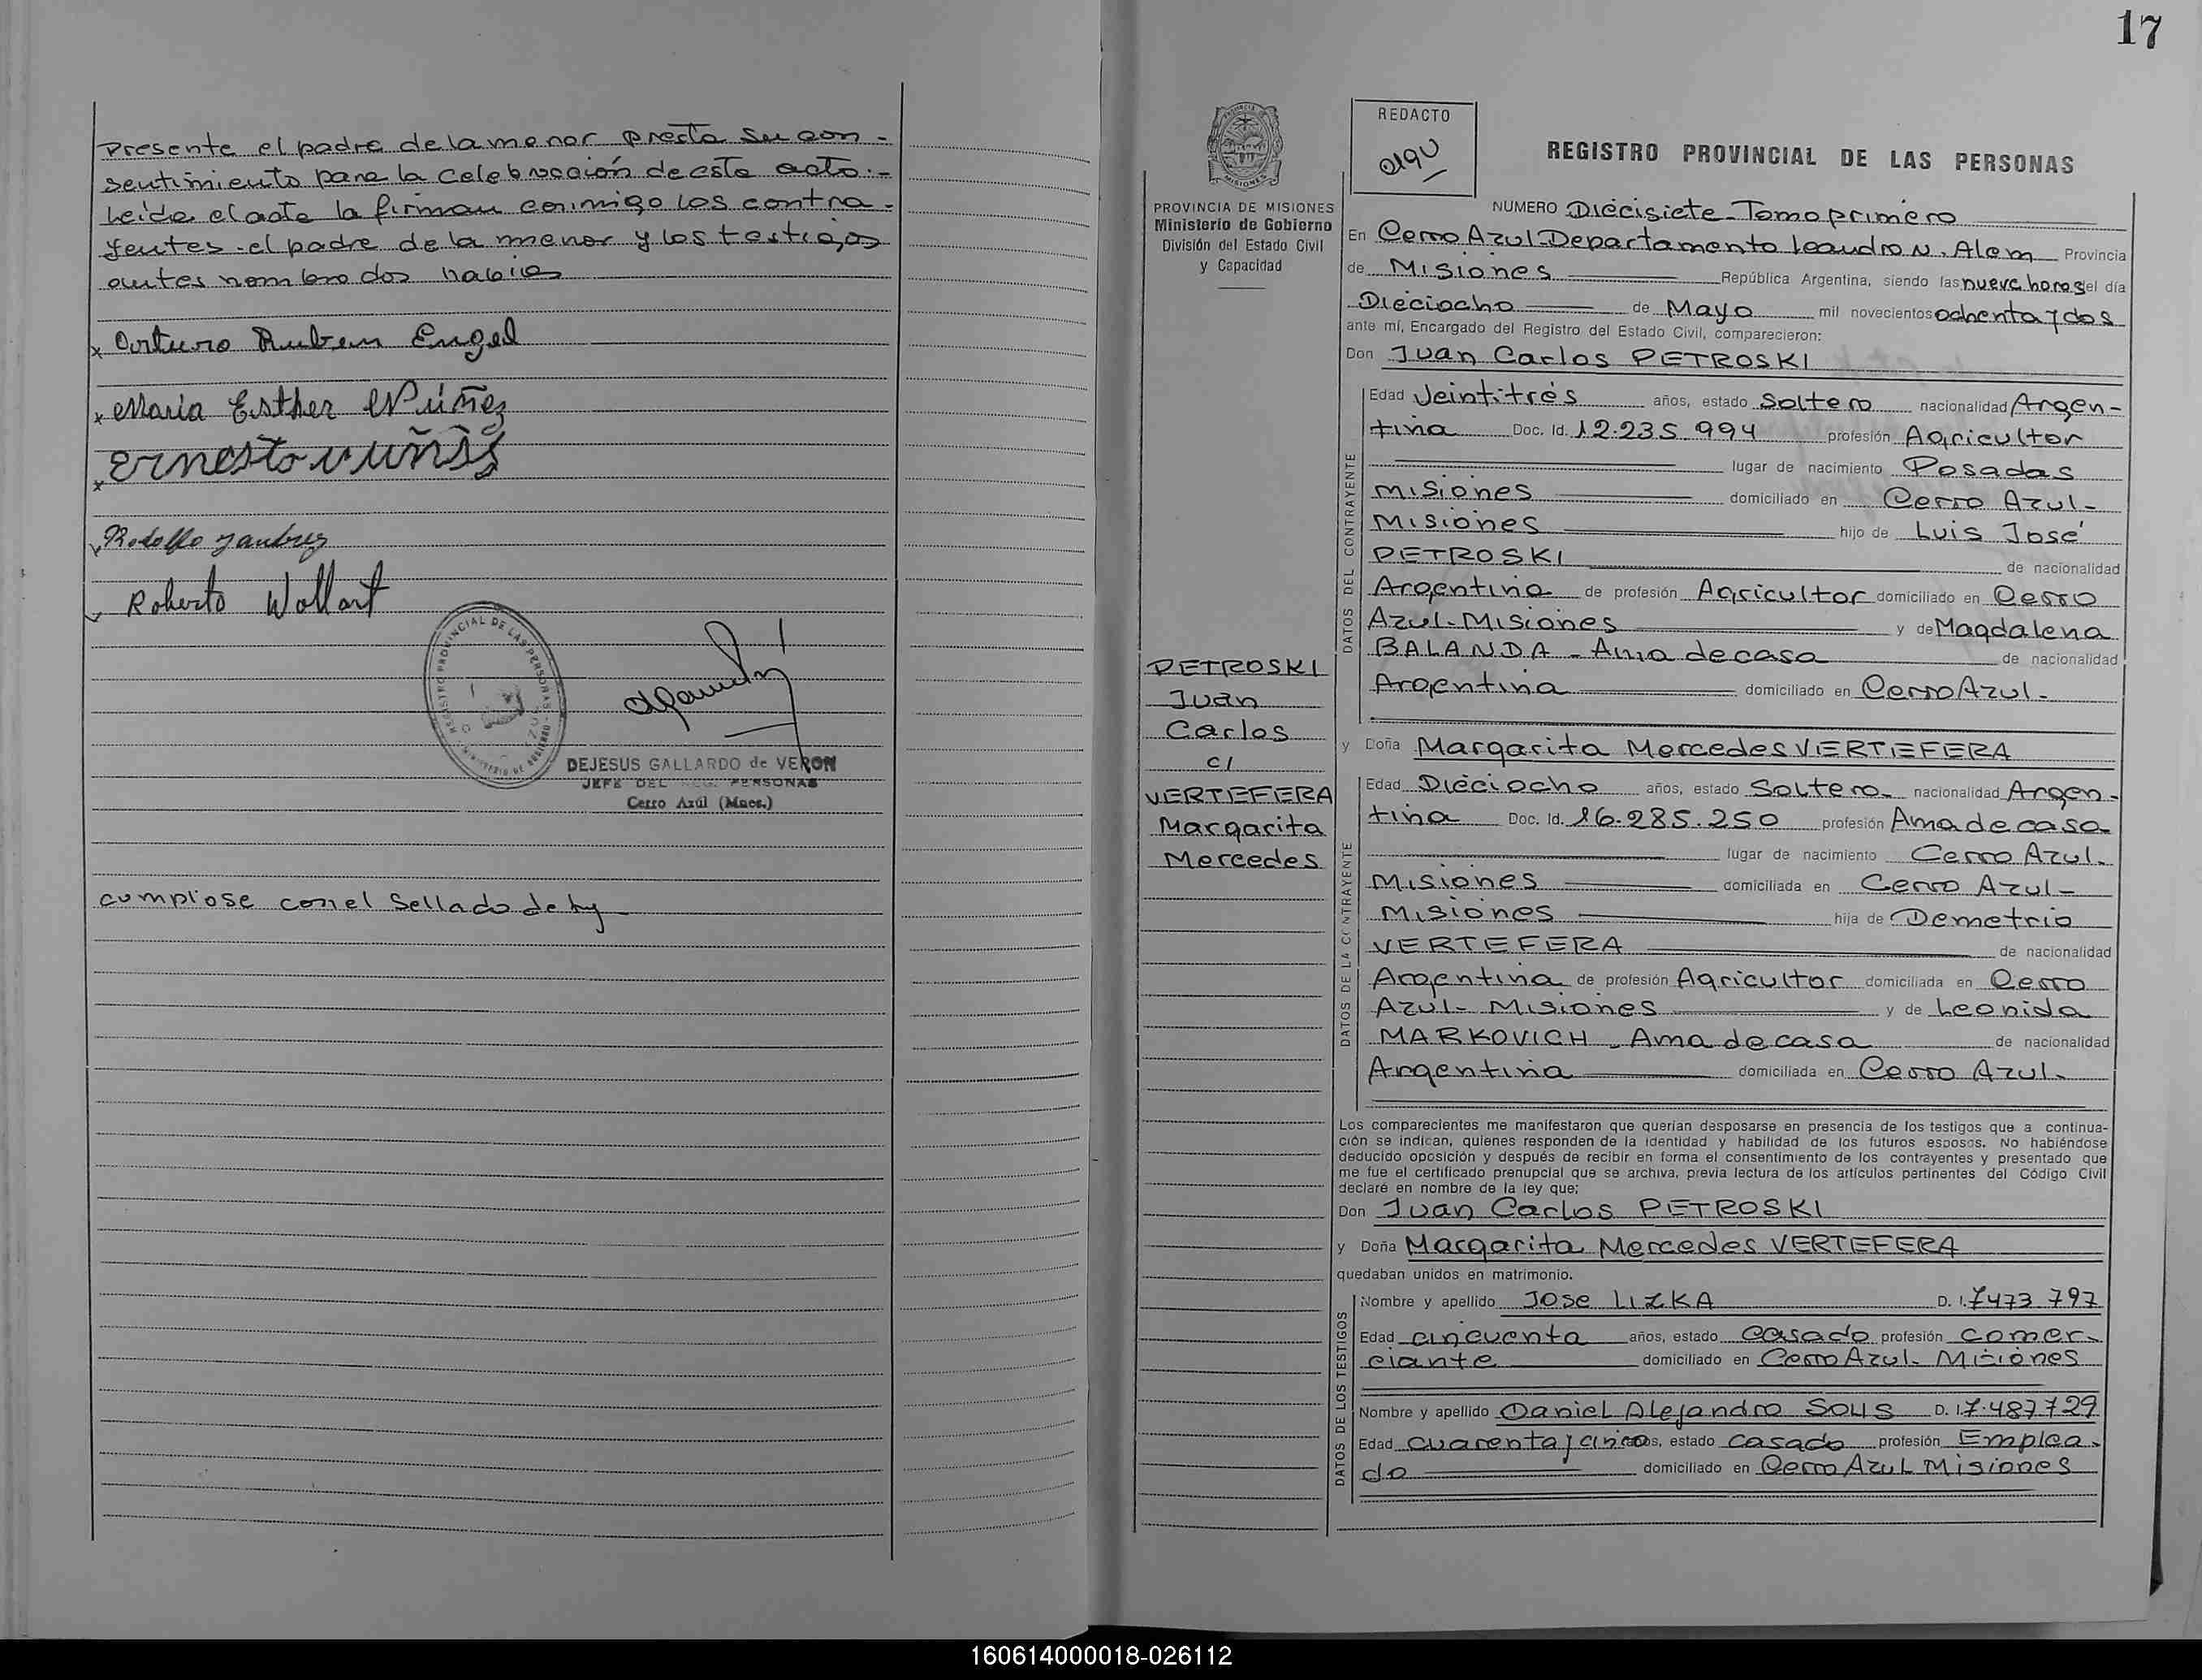 Presente el padre de la menor presta su con-
sentimiento para la celebración de este acto.-
Leída el acta la firman conmigo los contra-
yentes - el padre de la menor y los testigos
antes nombrados
Arturo Ruben Engel
Maria Esther Nuñez
Ernesto nuñes
Rodolfo
Roberto Wollart
REGISTRO PROVINCIAL DE LAS PERSONAS
DEJESUS GALLARDO de VERON
JEFE DEL REG. PERSONAS
Cerro Azúl (Mnes.)
cumpiose con el Sellado de ley
17
PROVINCIA DE MISIONES
Ministerio de Gobierno
División del Estado Civil
y Capacidad
PETROSKI
Juan
Carlos
c/
VERTEFERA
Margarita
Mercedes
REDACTO
REGISTRO PROVINCIAL DE LAS PERSONAS
NUMERO Diecisiete - Tomo primero
En Cerro Azul - Departamento Leandro N. Alem Provincia
de Misiones República Argentina, siendo las nueve horas del día
Dieciocho de Mayo mil novecientos ochenta y dos
ante mí, Encargado del Registro del Estado Civil, comparecieron:
Don Juan Carlos PETROSKI
DATOS DEL CONTRAYENTE
Edad Veintitrés años, estado Soltero nacionalidad Argen-
tina Doc. Id. 12.235.994 profesión Agricultor
lugar de nacimiento Posadas
Misiones domiciliado en Cerro Azul-
Misiones hijo de Luis José
PETROSKI de nacionalidad
Argentina de profesión Agricultor domiciliado en Cerro
Azul - Misiones y de Magdalena
BALANDA - Ama de casa de nacionalidad
Argentina domiciliado en Cerro Azul-
y Doña Margarita Mercedes VERTEFERA
DATOS DE LA CONTRAYENTE
Edad Dieciocho años, estado Soltera- nacionalidad Argen-
tina Doc. Id. 16.285.250 profesión Ama de casa
lugar de nacimiento Cerro Azul-
Misiones domiciliada en Cerro Azul-
Misiones hija de Demetrio
VERTEFERA de nacionalidad
Argentina de profesión Agricultor domiciliada en Cerro
Azul- Misiones y de Leonida
MARKOVICH - Ama de casa de nacionalidad
Argentina domiciliada en Cerro Azul-
Los comparecientes me manifestaron que querían desposarse en presencia de los testigos que a continua-
ción se indican, quienes responden de la identidad y habilidad de los futuros esposos. No habiéndose
deducido oposición y después de recibir en forma el consentimiento de los contrayentes y presentado que
me fue el certificado prenupcial que se archiva, previa lectura de los artículos pertinentes del Código Civil
declaré en nombre de la ley que;
Don Juan Carlos PETROSKI
y Doña Margarita Mercedes VERTEFERA
quedaban unidos en matrimonio.
DATOS DE LOS TESTIGOS
Nombre y apellido JOSE LIZKA D. I. 7473.797
Edad cincuenta años, estado casado profesión comer-
ciante domiciliado en Cerro Azul- Misiones
Nombre y apellido Daniel Alejandro SOLIS D. I. 7.487.729
Edad cuarenta y cinco años, estado casado profesión Emplea-
do domiciliado en Cerro Azul Misiones
160614000018-026112